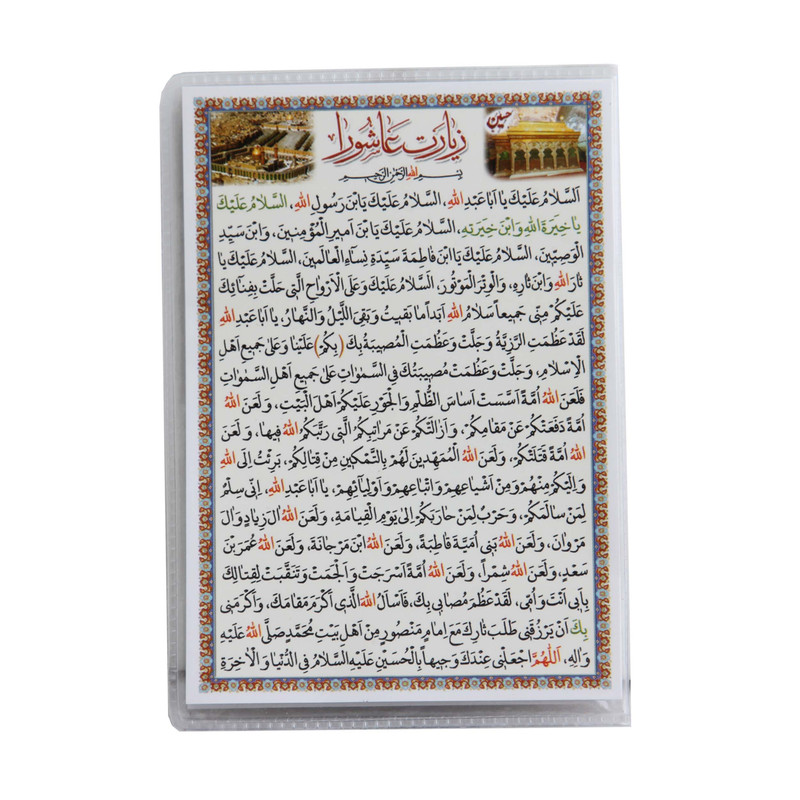 زیارت عاشورا
حسین
بِسْمِ اللهِ الرَّحْمٰنِ الرَّحیمِ
اَلسَّلامُ عَلَیْکَ یا اَبا عَبْدِ اللهِ، اَلسَّلامُ عَلَیْکَ یَابْنَ رَسُولِ اللهِ، اَلسَّلامُ عَلَیْکَ
یا خِیَرَةَ اللهِ وَابْنَ خِیَرَتِهِ، اَلسَّلامُ عَلَیْکَ یَابْنَ اَمیرِ الْمُؤْمِنینَ، وَابْنَ سَیِّدِ
الْوَصِیّینَ، اَلسَّلامُ عَلَیْکَ یَا ابْنَ فاطِمَةَ سَیِّدَةِ نِساءِ الْعالَمینَ، اَلسَّلامُ عَلَیْکَ یا
ثارَ اللهِ وَابْنَ ثارِهِ، وَالْوِتْرَ الْمَوْتُورَ، اَلسَّلامُ عَلَیْکَ وَعَلَی الْاَرْواحِ الَّتی حَلَّتْ بِفِنائِکَ
عَلَیْکُمْ مِنّی جَمیعاً سَلامُ اللهِ اَبَداً ما بَقیتُ وَ بَقِیَ اللَّیْلُ وَ النَّهارُ، یا اَبا عَبْدِ اللهِ
لَقَدْ عَظُمَتِ الرَّزِیَّةُ وَ جَلَّتْ وَ عَظُمَتِ الْمُصیبَةُ بِکَ (بِکُمْ) عَلَیْنا وَ عَلی جَمیعِ اَهْلِ
الْاِسْلامِ، وَ جَلَّتْ وَ عَظُمَتْ مُصیبَتُکَ فِی السَّمٰواتِ عَلی جَمیعِ اَهْلِ السَّمٰواتِ
فَلَعَنَ اللهُ اُمَّةً اَسَّسَتْ اَساسَ الظُّلْمِ وَ الْجَوْرِ عَلَیْکُمْ اَهْلَ الْبَیْتِ، وَ لَعَنَ اللهُ
اُمَّةً دَفَعَتْکُمْ عَنْ مَقامِکُمْ، وَ اَزالَتْکُمْ عَنْ مَراتِبِکُمُ الَّتی رَتَّبَکُمُ اللهُ فیها، وَ لَعَنَ
اللهُ اُمَّةً قَتَلَتْکُمْ، وَ لَعَنَ اللهُ الْمُمَهِّدینَ لَهُمْ بِالتَّمْکینِ مِنْ قِتالِکُمْ، بَرِئْتُ اِلَی اللهِ
وَ اِلَیْکُمْ مِنْهُمْ وَ مِنْ اَشْیاعِهِمْ وَ اَتْباعِهِمْ وَ اَوْلِیائِهِمْ، یا اَبا عَبْدِ اللهِ، اِنّی سِلْمٌ
لِمَنْ سالَمَکُمْ، وَ حَرْبٌ لِمَنْ حارَبَکُمْ اِلی یَوْمِ الْقِیامَةِ، وَ لَعَنَ اللهُ آلَ زِیادٍ وَ آلَ
مَرْوانَ، وَ لَعَنَ اللهُ بَنی اُمَیَّةَ قاطِبَةً، وَ لَعَنَ اللهُ ابْنَ مَرْجانَةَ، وَ لَعَنَ اللهُ عُمَرَ بْنَ
سَعْدٍ، وَ لَعَنَ اللهُ شِمْراً، وَ لَعَنَ اللهُ اُمَّةً اَسْرَجَتْ وَ اَلْجَمَتْ وَ تَنَقَّبَتْ لِقِتالِکَ
بِاَبی اَنْتَ وَ اُمّی، لَقَدْ عَظُمَ مُصابی بِکَ، فَاَسْأَلُ اللهَ الَّذی اَکْرَمَ مَقامَکَ، وَ اَکْرَمَنی
بِکَ اَنْ یَرْزُقَنی طَلَبَ ثارِکَ مَعَ اِمامٍ مَنْصُورٍ مِنْ اَهْلِ بَیْتِ مُحَمَّدٍ صَلَّی اللهُ عَلَیْهِ
وَ الِهِ، اَللّٰهُمَّ اجْعَلْنی عِنْدَکَ وَجیهاً بِالْحُسَیْنِ عَلَیْهِ السَّلامُ فِی الدُّنْیا وَ الْاخِرَةِ